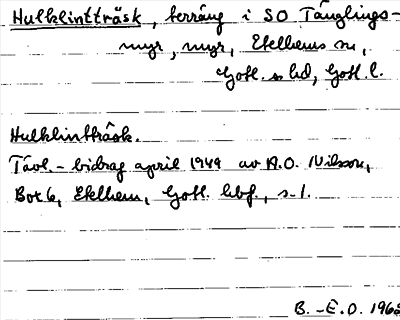 Hulklintträsk, terräng i SO Tänglings-
myr, myr, Etelhems sn,
Gotl. s hd, Gotl. l.
Hulklintträsk.
Tävl.-bidrag april 1949 av A.O. Nilsson,
Box 6, Etelhem, Gotl. hbf., s. 1.
B.-E.O. 1968